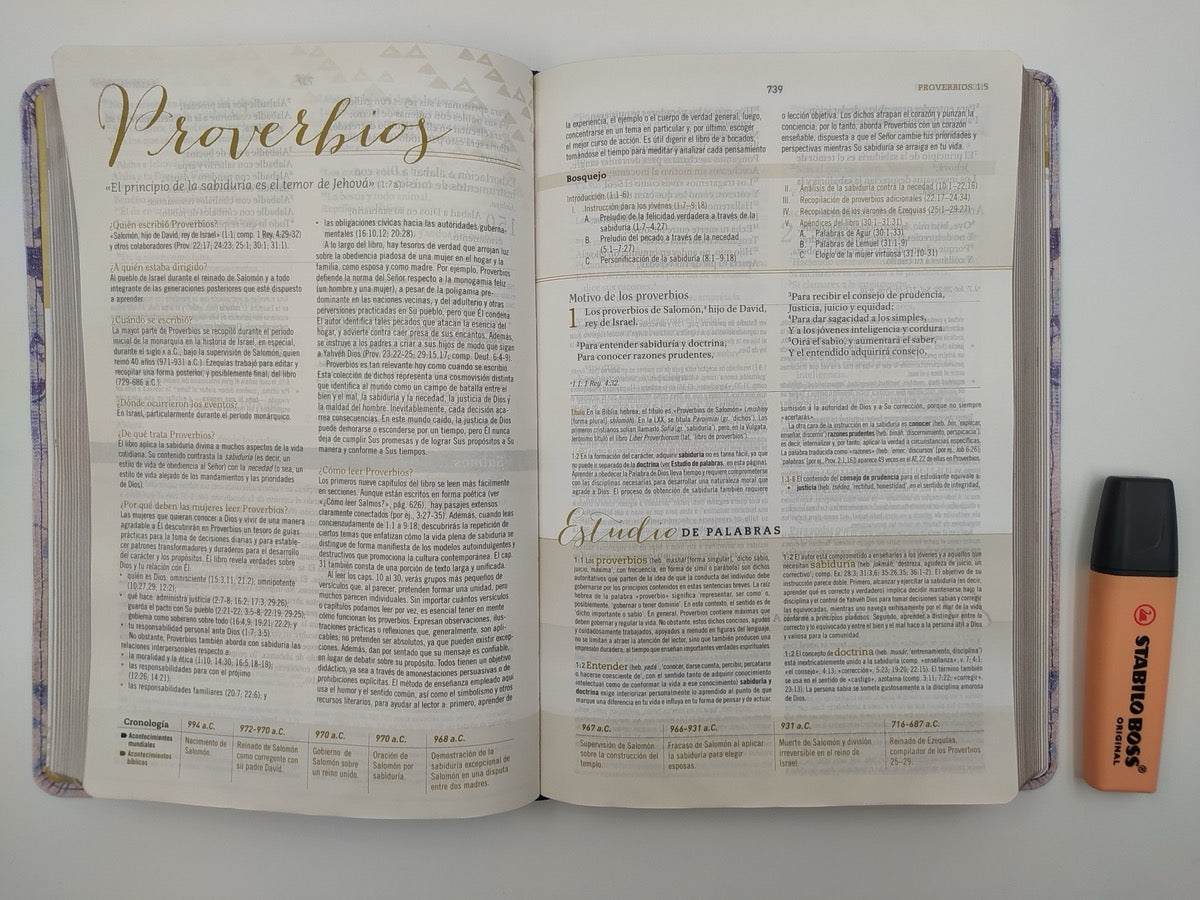 Proverbios
«El principio de la sabiduría es el temor de Jehová» (1:7a).
¿Quién escribió Proverbios?
«Salomón, hijo de David, rey de Israel» (1:1; comp. 1 Rey. 4:29-32)
y otros colaboradores (Prov. 22:17; 24:23; 25:1; 30:1; 31:1).
¿A quién estaba dirigido?
Al pueblo de Israel durante el reinado de Salomón y a todo
integrante de las generaciones posteriores que esté dispuesto
a aprender.
¿Cuándo se escribió?
La mayor parte de Proverbios se recopiló durante el período
inicial de la monarquía en la historia de Israel, en especial,
durante el siglo X a.C., bajo la supervisión de Salomón, quien
reinó 40 años (971-931 a.C.). Ezequías trabajó para editar y
recopilar una forma posterior, y posiblemente final, del libro
(729-686 a.C.).
¿Dónde ocurrieron los eventos?
En Israel, particularmente durante el período monárquico.
¿De qué trata Proverbios?
El libro aplica la sabiduría divina a muchos aspectos de la vida
cotidiana. Su contenido contrasta la sabiduría (es decir, un
estilo de vida de obediencia al Señor) con la necedad (o sea, un
estilo de vida alejado de los mandamientos y las prioridades
de Dios).
¿Por qué deben las mujeres leer Proverbios?
Las mujeres que quieran conocer a Dios y vivir de una manera
agradable a Él descubrirán en Proverbios un tesoro de guías
prácticas para la toma de decisiones diarias y para estable-
cer patrones transformadores y duraderos para el desarrollo
del carácter y los propósitos. El libro revela verdades sobre
Dios y tu relación con Él:
• quién es Dios, omnisciente (15:3,11, 21:2), omnipotente
(10:27,29, 12:2);
• qué hace: administra justicia (2:7-8, 16:2; 17:3, 29:26);
guarda el pacto con Su pueblo (2:21-22, 3:5-8, 22:19, 29:25);
gobierna como soberano sobre todo (16:4,9, 19:21, 22:2); y
• tu responsabilidad personal ante Dios (1:7, 3:5)
No obstante, Proverbios también aborda con sabiduría las
relaciones interpersonales respecto a
• la moralidad y la ética (1:10; 14:30, 16:5,18-19);
• las responsabilidades para con el prójimo
(12:26, 14:21);
• las responsabilidades familiares (20:7, 22:6); y
• las obligaciones cívicas hacia las autoridades guberna-
mentales (16:10,12; 20:28).
A lo largo del libro, hay tesoros de verdad que arrojan luz
sobre la obediencia piadosa de una mujer en el hogar y la
familia, como esposa y como madre. Por ejemplo, Proverbios
defiende la norma del Señor respecto a la monogamia feliz
(un hombre y una mujer), a pesar de la poligamia pre-
dominante en las naciones vecinas, y del adulterio y otras
perversiones practicadas en Su pueblo, pero que Él condena.
El autor identifica tales pecados que atacan la esencia del
hogar, y advierte contra caer presa de sus encantos. Además,
insta a los padres a criar a sus hijos de modo que sigan
a Yahvéh Dios (Prov. 23:22-25; 29:15,17; comp. Deut. 6:4-9).
Proverbios es tan relevante hoy como cuando se escribió.
Esta colección de dichos representa una cosmovisión distinta
que identifica al mundo como un campo de batalla entre el
bien y el mal, la sabiduría y la necedad, la justicia de Dios y
la maldad del hombre. Inevitablemente, cada decisión aca-
rrea consecuencias. En este mundo caído, la justicia de Dios
puede demorarse o ocurrir en otro tiempo, pero Él nunca
deja de cumplir Sus promesas y de lograr Sus propósitos a Su
manera y conforme a Sus tiempos.
¿Cómo leer Proverbios?
Los primeros nueve capítulos del libro se leen más fácilmente
en secciones. Aunque están escritos en forma poética (ver
«¿Cómo leer Salmos?», pág. 626), hay pasajes extensos
claramente conectados (por ej., 3:27-35). Además, cuando leas
concienzudamente de 1:1 a 9:18, descubrirás la repetición de
ciertos temas que enfatizan cómo la vida plena de sabiduría se
distingue de forma manifiesta de los modelos autoindulgentes y
destructivos que promociona la cultura contemporánea. El cap.
31 también consta de una porción de texto larga y unificada.
Al leer los caps. 10 al 30, verás grupos más pequeños de
versículos que, al parecer, pretenden formar una unidad, pero
muchos parecen individuales. Sin importar cuántos versículos
o capítulos podamos leer por vez, es esencial tener en mente
cómo funcionan los proverbios. Expresan observaciones, ilus-
traciones prácticas o reflexiones que, generalmente, son apli-
cables; no pretenden ser absolutos, ya que pueden existir excep-
ciones. Además, dan por sentado que su mensaje es confiable,
en lugar de debatir sobre su propósito. Todos tienen un objetivo
didáctico, ya sea a través de amonestaciones persuasivas o de
prohibiciones explícitas. El método de enseñanza empleado aquí
usa el humor y el sentido común, así como el simbolismo y otros
recursos literarios, para ayudar al lector a: primero, aprender de
Cronología
Acontecimientos mundiales
Acontecimientos bíblicos
994 a.C.
Nacimiento de
Salomón.
972-970 a.C.
Reinado de Salomón
como corregente con
su padre David.
970 a.C.
Gobierno de
Salomón sobre
un reino unido.
970 a.C.
Oración de
Salomón por
sabiduría.
968 a.C.
Demostración de la
sabiduría excepcional de
Salomón en una disputa
entre dos madres.
739
PROVERBIOS 1:5
la experiencia, el ejemplo o el cuerpo de verdad general; luego,
concentrarse en un tema en particular y, por último, escoger
el mejor curso de acción. Es útil digerir el libro de a bocados,
tomándose el tiempo para meditar y analizar cada pensamiento
o lección objetiva. Los dichos atrapan el corazón y punzan la
conciencia; por lo tanto, aborda Proverbios con un corazón
enseñable, dispuesta a que el Señor cambie tus prioridades y
perspectivas mientras Su sabiduría se arraiga en tu vida.
Bosquejo
Introducción (1:1-6)
I. Instrucción para los jóvenes (1:7–9:18)
A. Preludio de la felicidad verdadera a través de la
sabiduría (1:7–4:27)
B. Preludio del pecado a través de la necedad
(5:1–7:27)
C. Personificación de la sabiduría (8:1–9:18)
II. Análisis de la sabiduría contra la necedad (10:1–22:16)
III. Recopilación de proverbios adicionales (22:17–24:34)
IV. Recopilación de los varones de Ezequías (25:1–29:27)
V. Apéndices del libro (30:1–31:31)
A. Palabras de Agur (30:1-33)
B. Palabras de Lemuel (31:1-9)
C. Elogio de la mujer virtuosa (31:10-31)
Motivo de los proverbios
1 Los proverbios de Salomón,ᵃ hijo de David,
rey de Israel.
²Para entender sabiduría y doctrina,
Para conocer razones prudentes,
³Para recibir el consejo de prudencia,
Justicia, juicio y equidad;
⁴Para dar sagacidad a los simples,
Y a los jóvenes inteligencia y cordura.
⁵Oirá el sabio, y aumentará el saber,
Y el entendido adquirirá consejo,
ᵃ1:1: 1 Rey. 4:32.
Título En la Biblia hebrea, el título es «Proverbios de Salomón» (mishley
[forma plural] shelomoh). En la LXX, se titula Paroimiai (gr. 'dichos'). Los
primeros cristianos solían llamarlo Sofía (gr. 'sabiduría'), pero, en la Vulgata,
Jerónimo tituló el libro Liber Proverbiorum (lat. 'libro de proverbios').
1:2 En la formación del carácter, adquirir sabiduría no es tarea fácil, ya que
no puede ir separada de la doctrina (ver Estudio de palabras, en esta página).
Aprender a obedecer la Palabra de Dios lleva tiempo y requiere comprometerse
con las disciplinas necesarias para desarrollar una naturaleza moral que
agrade a Dios. El proceso de obtención de sabiduría también requiere
sumisión a la autoridad de Dios y a Su corrección, porque no siempre
«acertarás».
La otra cara de la instrucción en la sabiduría es conocer (heb. bin, 'explicar,
enseñar, discernir') razones prudentes (heb. binah, 'discernimiento, perspicacia'),
es decir, internalizar y, por tanto, aplicar la verdad a circunstancias específicas.
La palabra traducida como «razones» (heb. 'emer, 'discursos' [por ej., Job 6:26];
'palabras' [por ej., Prov. 2:1,16]) aparece 49 veces en el AT, 22 de ellas en Proverbios.
1:3-6 El contenido del consejo de prudencia para el estudiante equivale a:
• justicia (heb. tsedeq, 'rectitud, honestidad', en el sentido de integridad,
Estudio DE PALABRAS
1:1 Los proverbios (heb. mashal [forma singular], 'dicho sabio,
juicio, máxima', con frecuencia, en forma de símil o parábola) son dichos
autoritativos que parten de la idea de que la conducta del individuo debe
gobernarse por los principios contenidos en estas sentencias breves. La raíz
hebrea de la palabra «proverbio» significa 'representar, ser como' o,
posiblemente, 'gobernar o tener dominio'. En este contexto, el sentido es de
'dicho importante o sabio'. En general, Proverbios contiene máximas que
deben gobernar y regular la vida. No obstante, estos dichos concisos, agudos
y cuidadosamente trabajados, apoyados a menudo en figuras del lenguaje,
no se limitan a atraer la atención del lector, sino que también producen una
impresión duradera, al tiempo que enseñan importantes verdades espirituales.
1:2 Entender (heb. yada', 'conocer, darse cuenta, percibir, percatarse
o hacerse consciente de', con el sentido tanto de adquirir conocimiento
intelectual como de conformar la vida a ese conocimiento) sabiduría y
doctrina exige interiorizar personalmente lo aprendido al punto de que
marque una diferencia en tu vida e influya en tu forma de pensar y de actuar.
1:2 El autor está comprometido a enseñarles a los jóvenes y a aquellos que
necesitan sabiduría (heb. jokmah, 'destreza, agudeza de juicio, un
correctivo'; comp. Ex. 28:3; 31:3,6; 35:26,35; 36:1-2). El objetivo de su
instrucción parece doble. Primero, alcanzar y ejercitar la sabiduría (es decir,
aprender qué es correcto y verdadero) implica decidir mantenerse bajo la
disciplina y el control de Yahvéh Dios para tomar decisiones sabias y corregir
las equivocadas, mientras uno navega exitosamente por el mar de la vida
conforme a principios piadosos. Segundo, aprender a distinguir entre lo
correcto y lo equivocado y entre el bien y el mal hace a la persona útil a Dios
y valiosa para la comunidad.
1:2 El concepto de doctrina (heb. musar, 'entrenamiento, disciplina')
está inextricablemente unido a la sabiduría (comp. «enseñanza», v. 7; 4:1;
«el consejo», 4:13; «corrección», 5:23; 19:20; 22:15). El término también
se usa en el sentido de «castigo», azotaina (comp. 3:11; 7:22; «corregir»,
23:13). La persona sabia se somete gustosamente a la disciplina amorosa
de Dios.
967 a.C.
Supervisión de Salomón
sobre la construcción del
templo.
966-931 a.C.
Fracaso de Salomón al aplicar
la sabiduría para elegir
esposas.
931 a.C.
Muerte de Salomón y división
irreversible en el reino de
Israel.
716-687 a.C.
Reinado de Ezequías,
compilador de los Proverbios
25–29.
STABILO BOSS®
ORIGINAL